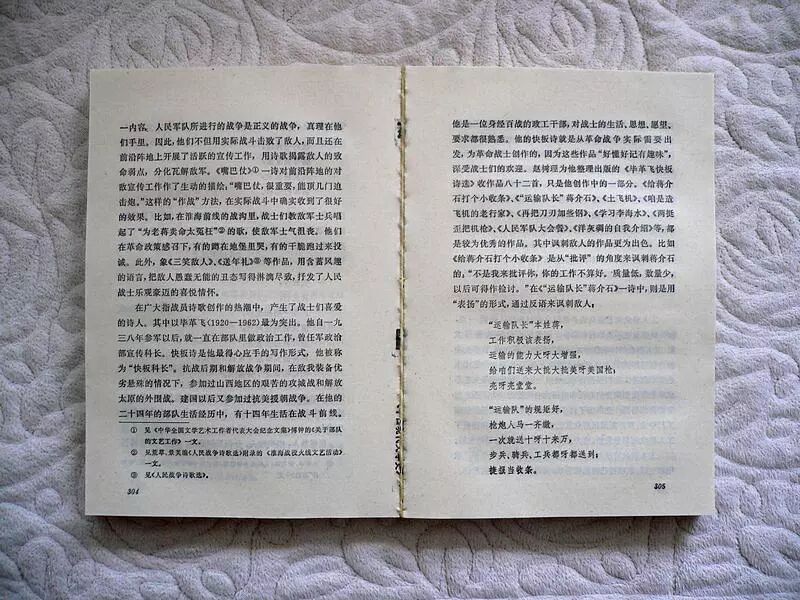 一内容。人民军队所进行的战争是正义的战争，真理在他
们手里。因此，他们不但用实际战斗击败了敌人，而且还在
前沿阵地上开展了活跃的宣传工作，用诗歌揭露敌人的致
命弱点，分化瓦解敌军。《嘴巴仗》①一诗对前沿阵地的对
敌宣传工作作了生动的描绘：“嘴巴仗，很重要，能顶几门迫
击炮。”这样的“作战”方法，在实际战斗中确实收到了很好
的效果。比如，在淮海前线的战沟里，战士们教敌军士兵唱
起了“为老蒋卖命太冤枉”②的歌，使敌军士气沮丧。他们
在革命政策感召下，有的蹲在地堡里哭，有的干脆跑过来投
诚。此外，象《三笑敌人》、《送年礼》③等作品，用含蓄风趣
的语言，把敌人愚蠢无能的丑态写得淋漓尽致，抒发了人民
战士乐观豪迈的喜悦情怀。
在广大指战员诗歌创作的热潮中，产生了战士们喜爱
的诗人。其中以毕革飞（1920—1962）最为突出。他自一九
三八年参军以后，就一直在部队里做政治工作，曾任军政治
部宣传科长。快板诗是他最得心应手的写作形式，他被称
为“快板科长”。抗战后期和解放战争期间，在敌我装备优
劣悬殊的情况下，参加过山西地区的艰苦的攻城战和解放
太原的外围战。建国以后又参加过抗美援朝战争。在他的
二十四年的部队生活经历中，有十四年生活在战斗前线。
① 见《中华全国文学艺术工作者代表大会纪念文集》傅钟的《关于部队
的文艺工作》一文。
② 见荒草、景芙编《人民战争诗歌选》附录的《淮海战役火线文艺活动》
一文。
③ 见《人民战争诗歌选》。
304
他是一位身经百战的政工干部，对战士的生活、思想、愿望、
要求都很熟悉。他的快板诗就是从革命战争实际需要出
发，为革命战士创作的，因为这些作品“好懂好记有趣味”，
深受战士们的欢迎。赵树理为他整理出版的《毕革飞快板
诗选》收作品八十二首，只是他创作中的一部分。《给蒋介
石打个小收条》、《“运输队长”蒋介石》、《土飞机》、《咱是造
飞机的老行家》、《再把刀刃加些钢》、《学习李海水》、《两挺
歪把机枪》、《人民军队大会餐》、《洋灰碉的自我介绍》等，都
是较为优秀的作品。其中讽刺敌人的作品更为出色。比如
《给蒋介石打个小收条》是从“批评”的角度来讽刺蒋介石
的，“不是我来批评你，你的工作不算好。质量低，数量少，
以后可得作检讨。”在《“运输队长”蒋介石》一诗中，则是用
“表扬”的形式，通过反语来讽刺敌人：
“运输队长”本姓蒋，
工作积极该表扬，
运输的能力大呀大增强，
给咱们送来大批大批美呀美国枪；
亮呀亮堂堂。
“运输队”的规矩好，
枪炮人马一齐缴，
一次就送十呀十来万，
步兵、骑兵、工兵都呀都送到；
捷报当收条。
305